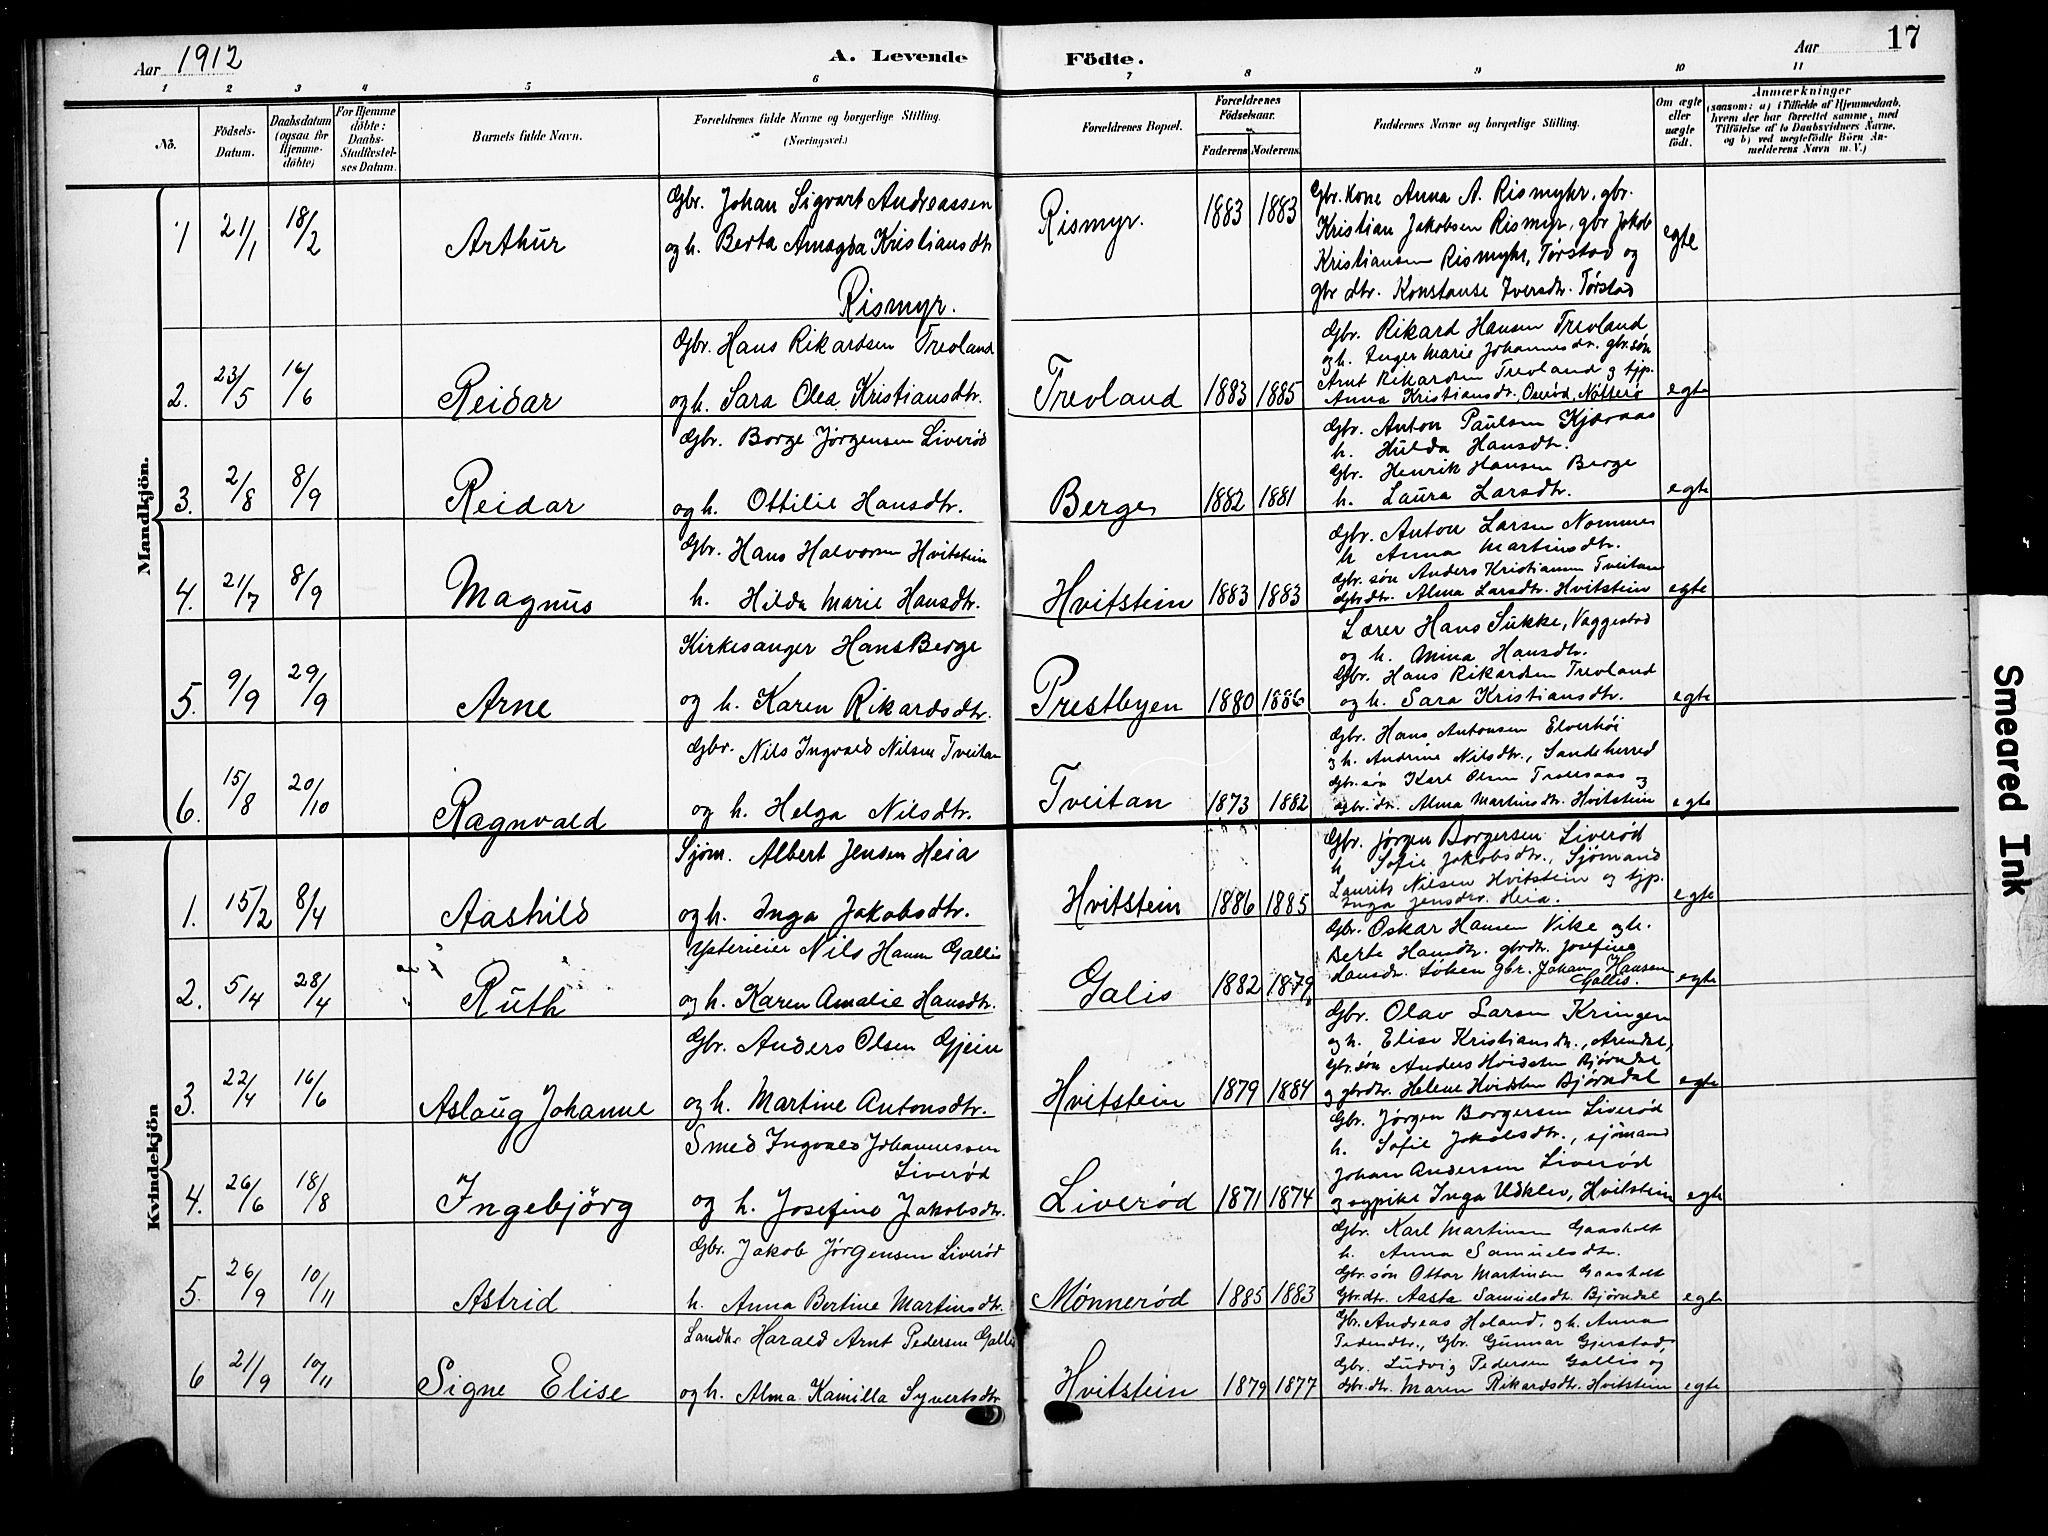 Aar 1912
A. Levende Födte.
Aar 17
1 2 3 4 5 6 7 8 9 10 11
No.
Födsels-Datum.
Daabsdatum (ogsaa for Hjemme-döbte)
For Hjemme döbte: Daabs-Stadfæstel-ses Datum.
Barnets fulde Navn.
Forældrenes fulde Navne og borgerlige Stilling.
(Næringsvei.)
Forældrenes Bopæl.
Forældrenes Födselsaar.
Faderens Moderens.
Faddernes Navne og borgerlige Stilling.
Om ægte eller uægte födt.
Anmærkninger
(saasom: a) i Tilfælde af Hjemmedaab, hvem der har forrettet samme, med Tilföielse af to Daabsvidners Navne, og b) ved uegtefödte Börn An-melderens Navn m. V.)
Mandkjön.
1 21/1 18/2 Arthur
Gbr. Johan Sigvart Andreassen
og h. Berta Amagda Kristiansdtr
Rismyr.
Rismyr. 1883 1883
Gbr. kone Anna A. Rismyhr, gbr.
Kristian Jakobsen Rismyr, gbr Jakob
Kristiansen Rismyhr, Tørstad og
gbr dtr. Konstanse Iversdtr. Tørstad
egte
2. 23/5 16/6 Reidar
Gbr. Hans Rikardsen Trevland
og h. Sara Olea Kristiansdtr.
Trevland 1883 1885
Gbr. Rikard Hansen Trevland
og h. Inger Marie Johannesdr. gbr. søn
Arnt Rikardsen Trevland og tjp.
Anna Kristiansdr. Oserød, Nøtterø
egte
3. 2/8 8/9 Reidar
Gbr. Borge Jørgensen Liverød
og h. Ottilie Hansdtr.
Berge 1882 1881
Gbr. Anton Paulsen Kjæraas
h. Hulda Hansdtr.
Gbr. Henrik Hansen Berge
h. Laura Larsdtr.
egte
4. 21/7 8/9 Magnus
Gbr. Hans Halvorsen Hvitstein
h. Hilda Marie Hansdtr.
Hvitstein 1883 1883
Gbr. Anton Larsen Nommes
h Anna Martinsdtr.
Gbr. søn Anders Kristiansen Tveitan
Gbrdtr. Alma Larsdtr. Hvitstein
egte
5. 9/9 29/9 Arne
Kirkesanger Hans Berge
og h. Karen Rikardsdtr.
Prestbyen 1880 1886
Lærer Hans Sukke, Vaggestad
og h. Mina Hansdtr.
Gbr. Hans Rikardsen Trevland
og h. Sara Kristiansdtr.
egte
6. 15/8 20/10 Ragnvald
Gbr. Nils Ingvald Nilsen Tveitan
og h. Helga Nilsdtr.
Tveitan 1873 1882
Gbr. Hans Antonsen Elverhöi
og h. Andrine Nilsdtr., Sandeherred
Gbr. søn Karl Olsen Trollsaas og
gbr. dtr. Alma Martinsdtr. Hvitstein
egte
Kvindekjön
1. 15/2 8/4 Aashild
Sjøm. Albert Jensen Heia
og h. Inga Jakobsdtr.
Hvitstein 1886 1885
Gbr. Jørgen Borgersen Liverød
h Sofie Jakobsdtr., Sjømand
Laurits Nilsen Hvitstein og tjp.
Inga Jensdtr. Heia.
egte
2. 5/4 28/4 Ruth
Ysterieier Nils Hansen Gallis
og h. Karen Amalie Hansdtr.
Galis 1882 1879
Gbr. Oskar Hansen Vike og h.
Berte Hansdtr. gbrdtr. Josefine
Hansdr. Løken gbr. Johan Hansen
Gallis.
egte
3. 22/4 16/6 Aslaug Johanne
Gbr. Anders Olsen Gjein
og h. Martine Antonsdtr.
Hvitstein 1879 1884
Gbr. Olav Larsen Kringen
og h. Elise Kristiansdtr., Arendal,
Gbr. søn Anders Hvidsten Bjørndal
og gbrdtr. Helene Hvidsten Bjørndal
egte
4. 26/6 18/8 Ingebjörg
Smed Ingvald Johannessen
Liverød
og h. Josefine Jakobsdtr.
Liverød 1871 1874
Gbr. Jørgen Borgersen Liverød
h. Sofie Jakobsdtr., sjømand
Johan Andersen Liverød
og sypike Inga Udklev, Hvitstein
egte
5. 26/9 10/11 Astrid
Gbr. Jakob Jørgensen Liverød
h. Anna Bertine Martinsdtr.
Mønnerød 1885 1883
Gbr. Karl Martinsen Gaasholt
h. Anna Samuelsdtr.
Gbr. søn Ottar Martinsen Gaasholt
Gbr.dtr. Aasta Samuelsdtr. Bjørndal
egte
6 21/9 10/11 Signe Elise
Landh. Harald Arnt Pedersen Gallis
og h. Alma Kamilla Syvertsdtr
Hvitstein 1879 1877
Gbr. Andreas Holand, og h. Anna
Pedersdtr., Gbr. Gunnar Gjerstad,
Gbr. Ludvig Pedersen Gallis og
Gbr. dtr. Maren Rikardsdtr. Hvitstein
egte
Smeared Ink